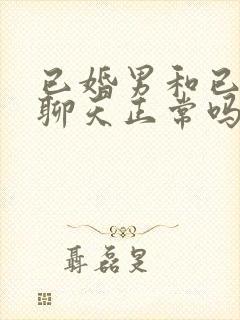 已婚男和已
聊天正常吗
聂磊旻